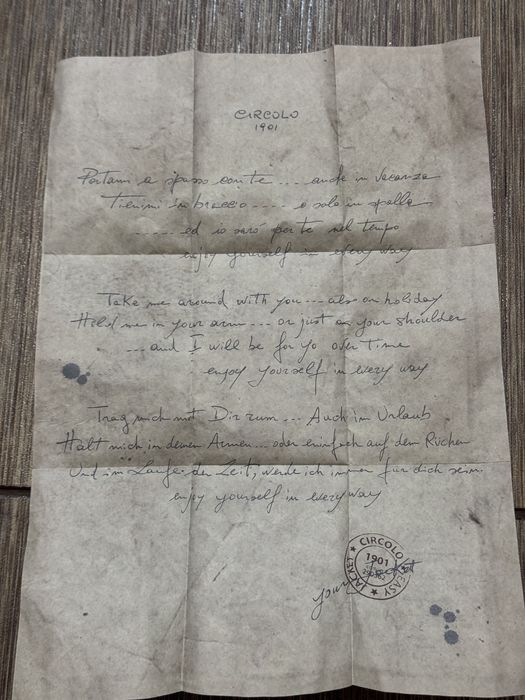 CIRCOLO
1901
Portami a spasso con te ... anche in vacanza
Tienimi in braccio .... o solo in spalla
...... ed io sarò per te nel tempo
enjoy yourself in every way
Take me around with you ... also on holiday
Hold me in your arm .... or just on your shoulder
... and I will be for yo over time
enjoy yourself in every way
Trag mich mit Dir rum ... Auch im Urlaub
Halt mich in deinen Armen ... oder einfach auf dem Rücken
Und im Laufe der Zeit, werde ich immer für dich sein.
enjoy yourself in every way
CIRCOLO ★ EASY ★ JACKET ★
1901
your Jacket